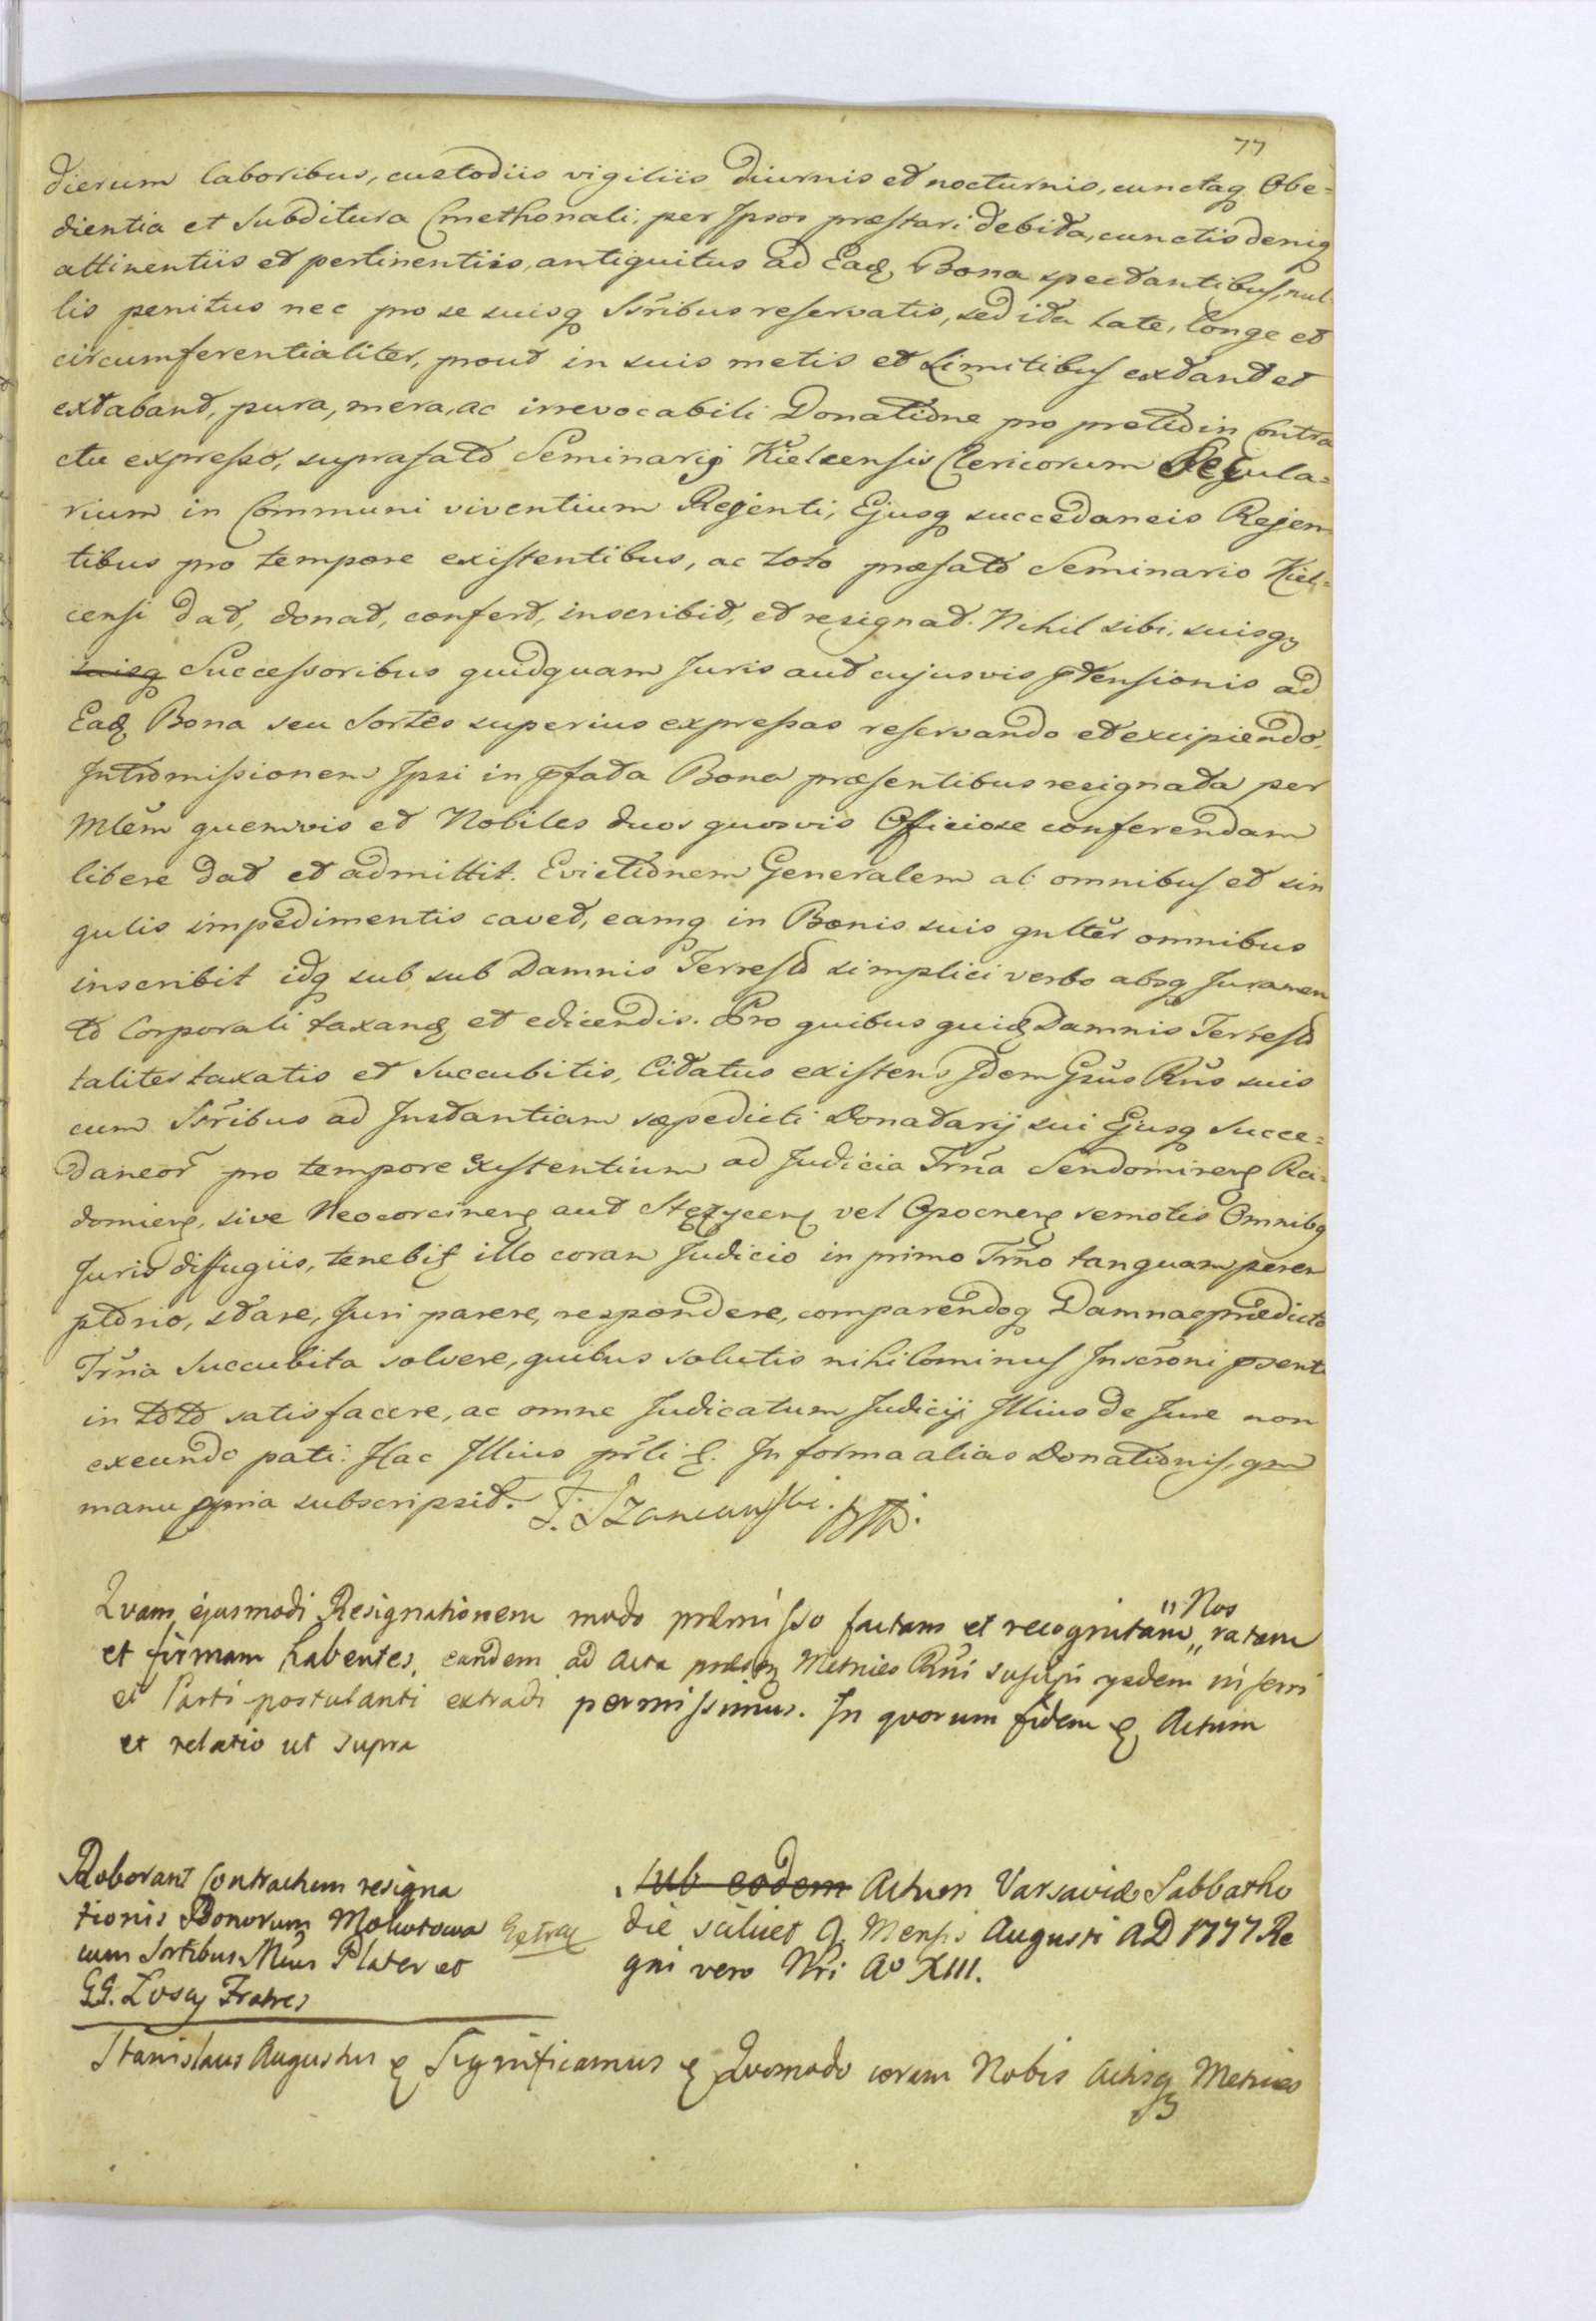 77
dierum laboribus, custodiis vigiliis diurnis et nocturnis, cunctaq Obe=
dientia et Subditura Cmethonali, per Ipsos præstari debita, cunctis deniq
attinentiis et pertinentiis, antiquitus ad Eadq Bona spectantibus, nul
lis penitus nec pro se suisq Ssribus reservatis, sed ita late, longe et
circumferentialiter, prout in suis metis et Limitibus extant et
extabant, pura, mera, ac irrevocabili Donatione pro pretio in Contra
ctu expresso, suprafato Seminarij Kielcensis Clericorum Sæcula=
rium in Communi viventium Regenti, Ejusq succedaneis Regen
tibus pro tempore existentibus, ac toto præfato Seminario Kiel=
censi dat, donat, confert, inscribit, et resignat. Nihil sibi, suisq
suisq Successoribus quidquam Juris aut cujusvis ptensionis ad
Eadq Bona seu Sortes superius expressas reservando et excipiendo.
Intromissionem Ipsi in pfata Bona præsentibus resignata per
Mlem quemvis et Nobiles duos quosvis Officiose conferendam
libere dat et admittit. Evictionem Generalem ab omnibus et sin
gulis impedimentis cavet, eamq in Bonis suis gnlter omnibus
inscribit idq sub sub Damnis Terrestr simplici verbo absq Juramen
to Corporali taxand et edicendis. Pro quibus quidq Damnis Terrestr
taliter taxatis et Succubitis, Citatus existens Idem Gsus Rns suis
cum Ssribus ad Instantiam sæpedicti Donatarij sui Ejusq Succe=
daneor pro tempore existentium ad Judicia Trria Sendomirens Ra=
domiens, sive Neocorcinens aut Stężycens vel Opocnens remotis Omnibq
Juris diffugiis, tenebit illo coram Judicio in primo Trno tanquam perem
ptorio, stare, Juri parere, respondere, comparendoq Damnaq prædicta
Trria Succubita solvere, quibus solutis nihilominus Inscroni psenti
in toto satisfacere, ac omne Judicatum Judicij Illius de Jure non
exeundo pati. Hac Illius prli &. In forma alias Donationis, qm
manu ppria subscripsit. F. Szaniawski. mpp.
Quam ejusmodi Resignationem modo præmisso factam et recognitam " Nos " ratam
et firmam habentes, eandem ad Acta præsen Metrices Rni suscipi ysdem inseri
et Parti postulanti extradi permissimus. In quorum fidem & Actum
et relatio ut supra
Roborant Contractum resigna
tionis Bonorum Mokotowa
cum Sortibus Mnus Plater et
GG. Zosy Fratres
Extrad
sub eodem Actum Varsaviæ Sabbatho
die scilicet 9. Mensis Augusti AD 1777 Re
gni vero Nri Ao XIII.
Stanislaus Augustus & Significamus & Quomodo coram Nobis Actisq Metrices